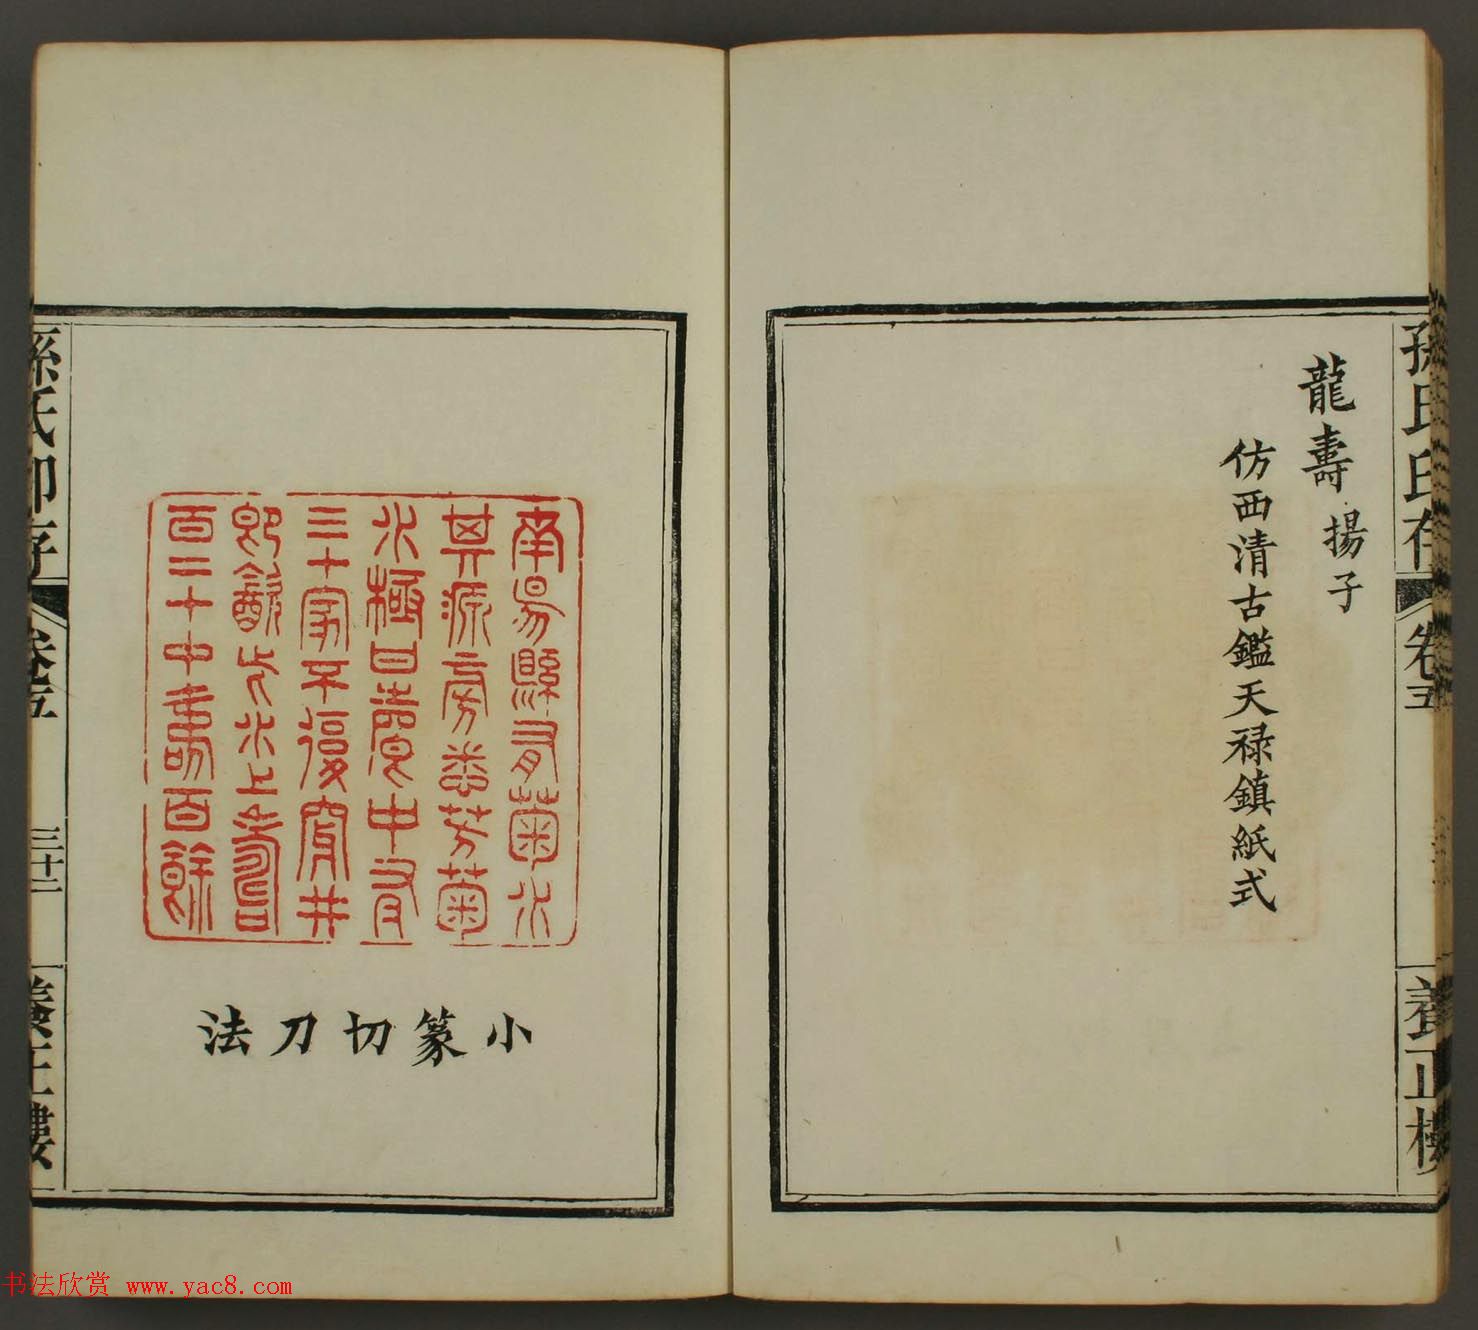 孫氏印存
卷五
養正樓
龍壽 揚子
仿西清古鑑天禄鎮紙式
南昜縣有菊水
其源旁悉芳菊
水極甘馨中有
三十家不復穿井
即飲此水上壽
百二十中壽百餘
小篆切刀法
孫氏印存
卷五
三十二
養正樓
书法欣赏 www.yac8.com